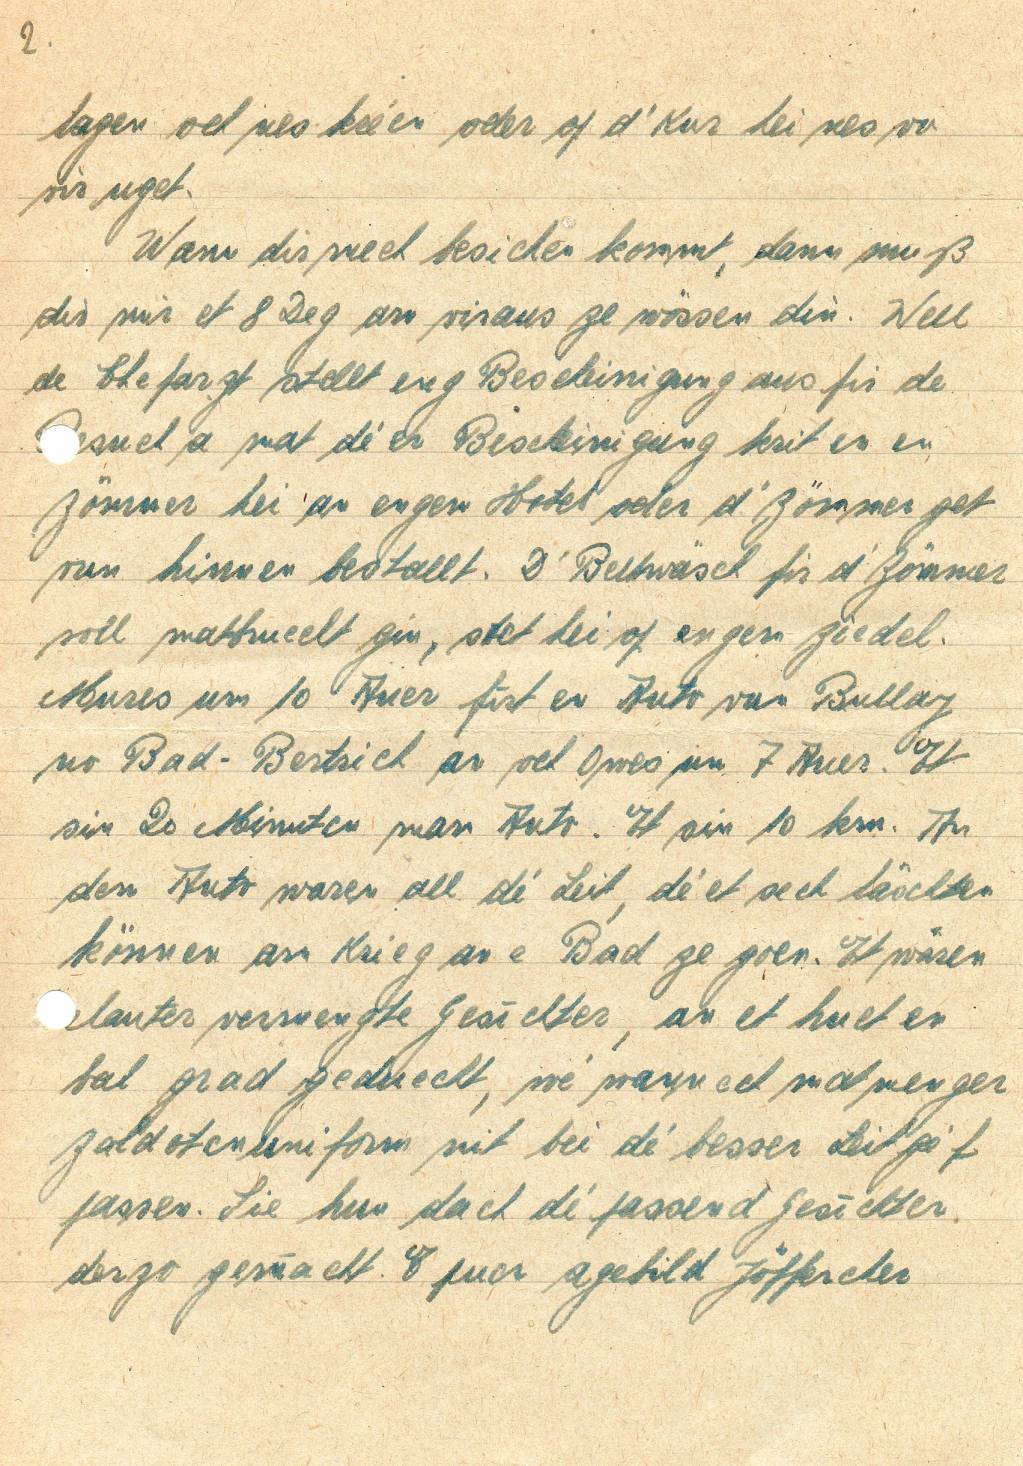 2.
lagen och nes héien oder of d'Kur hei nes vo
vir uget.
Wann dir mech besichen kommt, dann muß
dir mir et 8 Deg am viraus ze wössen din. Well
de Chefarzt stellt eng Bescheinigung aus fir de
Besuch a mat dé er Bescheinigung krit en en
Zömmer hei an engem Hotel oder d'Zömmer get
vun hinnen bestallt. D'Bettwäsch fir d'Zömmer
soll matbruecht gin, stet hei of engem Ziedel.
Mures um 10 Auer firt en Auto vun Bullay
no Bad-Bertrich an och Owes um 7 Auer. Et
sin 20 Minuten mam Auto. Et sin 10 km. An
dem Auto waren all dé Leit, dé et sech läschten
können am Krieg an e Bad ze goen. Et wären
lauter vermengte Gesichter, an et huet en
bal grad geduecht, wé wann ech mat menger
Zaldotenuniform nit bei dé besser Leit géf
passen. Sie hun dach dé passend Gesichter
derzo gemacht. E puer agebild Jöffercher